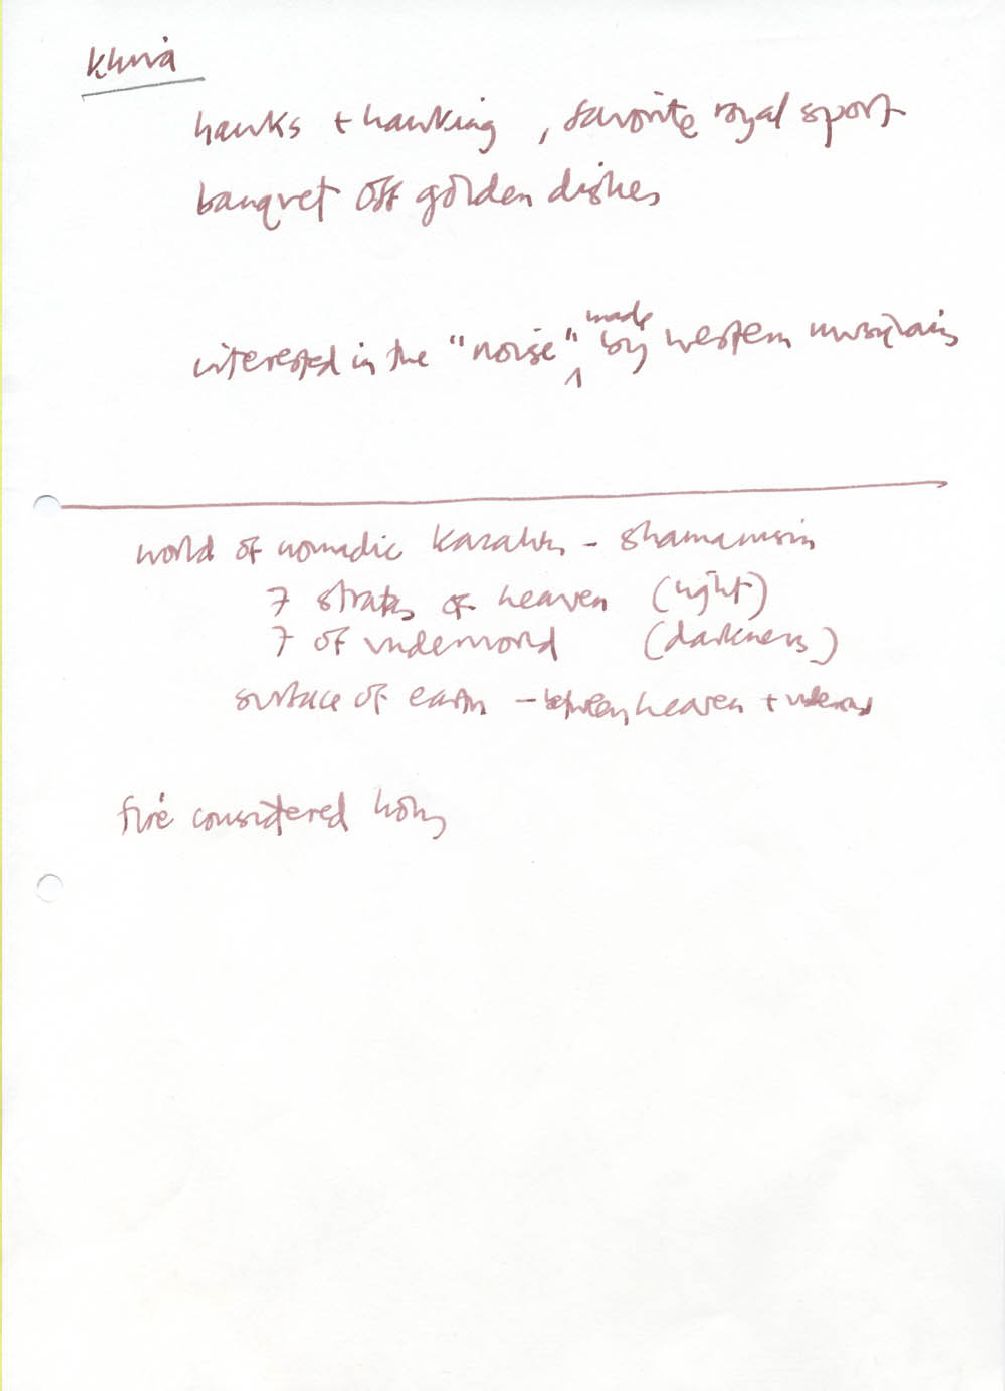 Khiva
hawks + hawking, favorite royal sport
banquet off golden dishes
interested in the "noise" made by western musicians
world of nomadic Kazakhs - shamanism
7 strata of heaven (light)
7 of underworld (darkness)
surface of earth - between heaven + underworld
fire considered holy